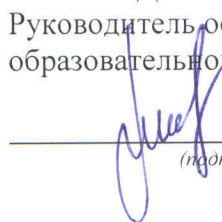 Руководитель о
образовательно
(под